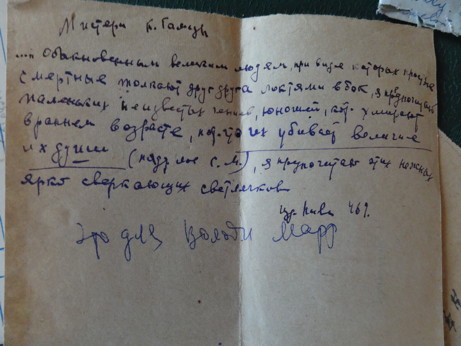 Мистери К. Гамсун
.... Обыкновенным великим людям, при виде которых простые
смертные толкают друг друга локтями в бок, я предпочитаю
маленьких неизвестных гениев, юношей, кот. умирают
в раннем возрасте, пот.что их убивает величие
их души (С.М.), я предпочитаю этих нежных
ярко сверкающих светлячков
Нива
Это для Март